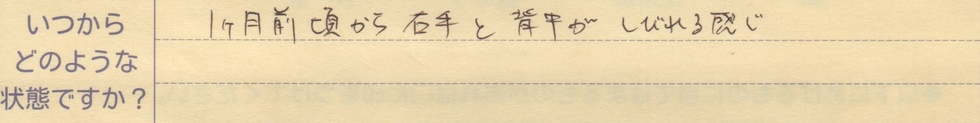 いつから
どのような
状態ですか？
1ヶ月前頃から右手と背中がしびれる感じ